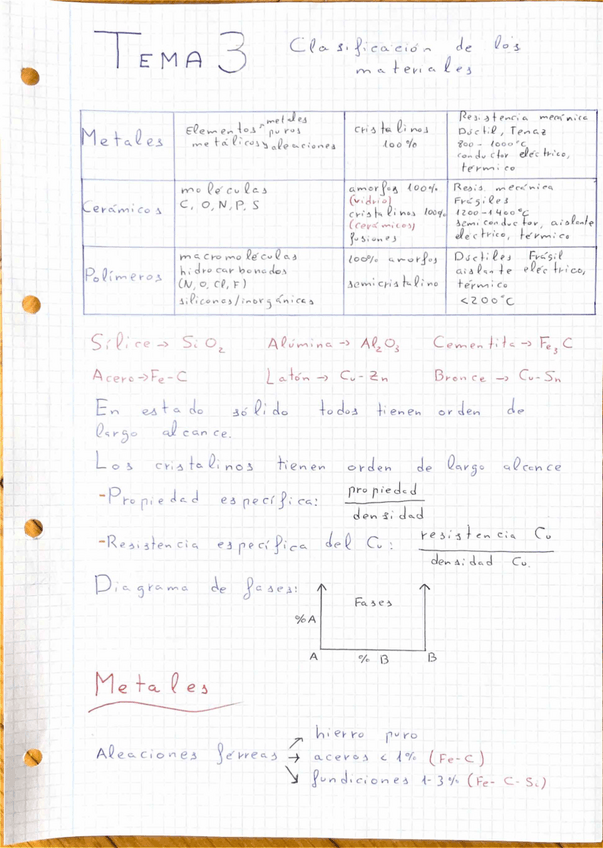 TEMA 3 Clasificación de los
materiales
Metales
Elementos metales
puros
metálicos y aleaciones
cristalinos
100%
Resistencia mecánica
Dúctil, Tenaz
800-1000°C
conductor eléctrico,
térmico
Cerámicos
moléculas
C, O, N, P, S
amorfos 100%
(vidrio)
cristalinos 100%
(cerámicos)
fusiones
Resis. mecánica
Frágiles
1200-1400°C
semiconductor, aislante
eléctrico, térmico
Polímeros
macromoléculas
hidrocarbonados
(N, O, Cl, F)
siliconas/inorgánicas
100% amorfos
semicristalino
Dúctiles Frágil
aislante eléctrico,
térmico
<200°C
Sílice → SiO2 Alúmina → Al2O3 Cementita → Fe3C
Acero → Fe-C Latón → Cu-Zn Bronce → Cu-Sn
En estado sólido todos tienen orden de
largo alcance.
Los cristalinos tienen orden de largo alcance
-Propiedad específica: propiedad
densidad
-Resistencia específica del Cu: resistencia Cu
densidad Cu.
Diagrama de fases:
Fases
%A
A % B B
Metales
hierro puro
Aleaciones férreas → aceros < 1% (Fe-C)
fundiciones 1-3% (Fe-C-Si)